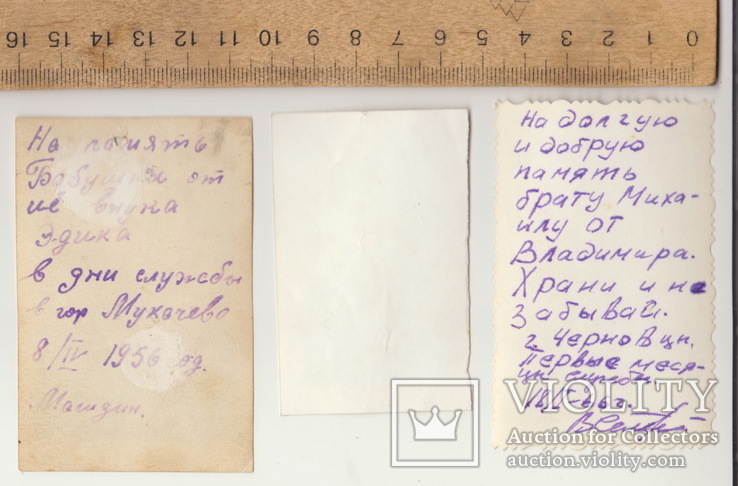 16 15 14 13 12 11 10 9 8 7 6 5 4 3 2 1 0
На память
Бабушки от
её внука
Эдика
в дни службы
в гор Мукачево
8/IV 1956 год.
На долгую
и добрую
память
брату Миха-
илу от
Владимира.
Храни и не
забывай.
г. Черновцы.
Первые меся-
цы службы.
VIOLITY
Auction for Collectors
auction.violity.com